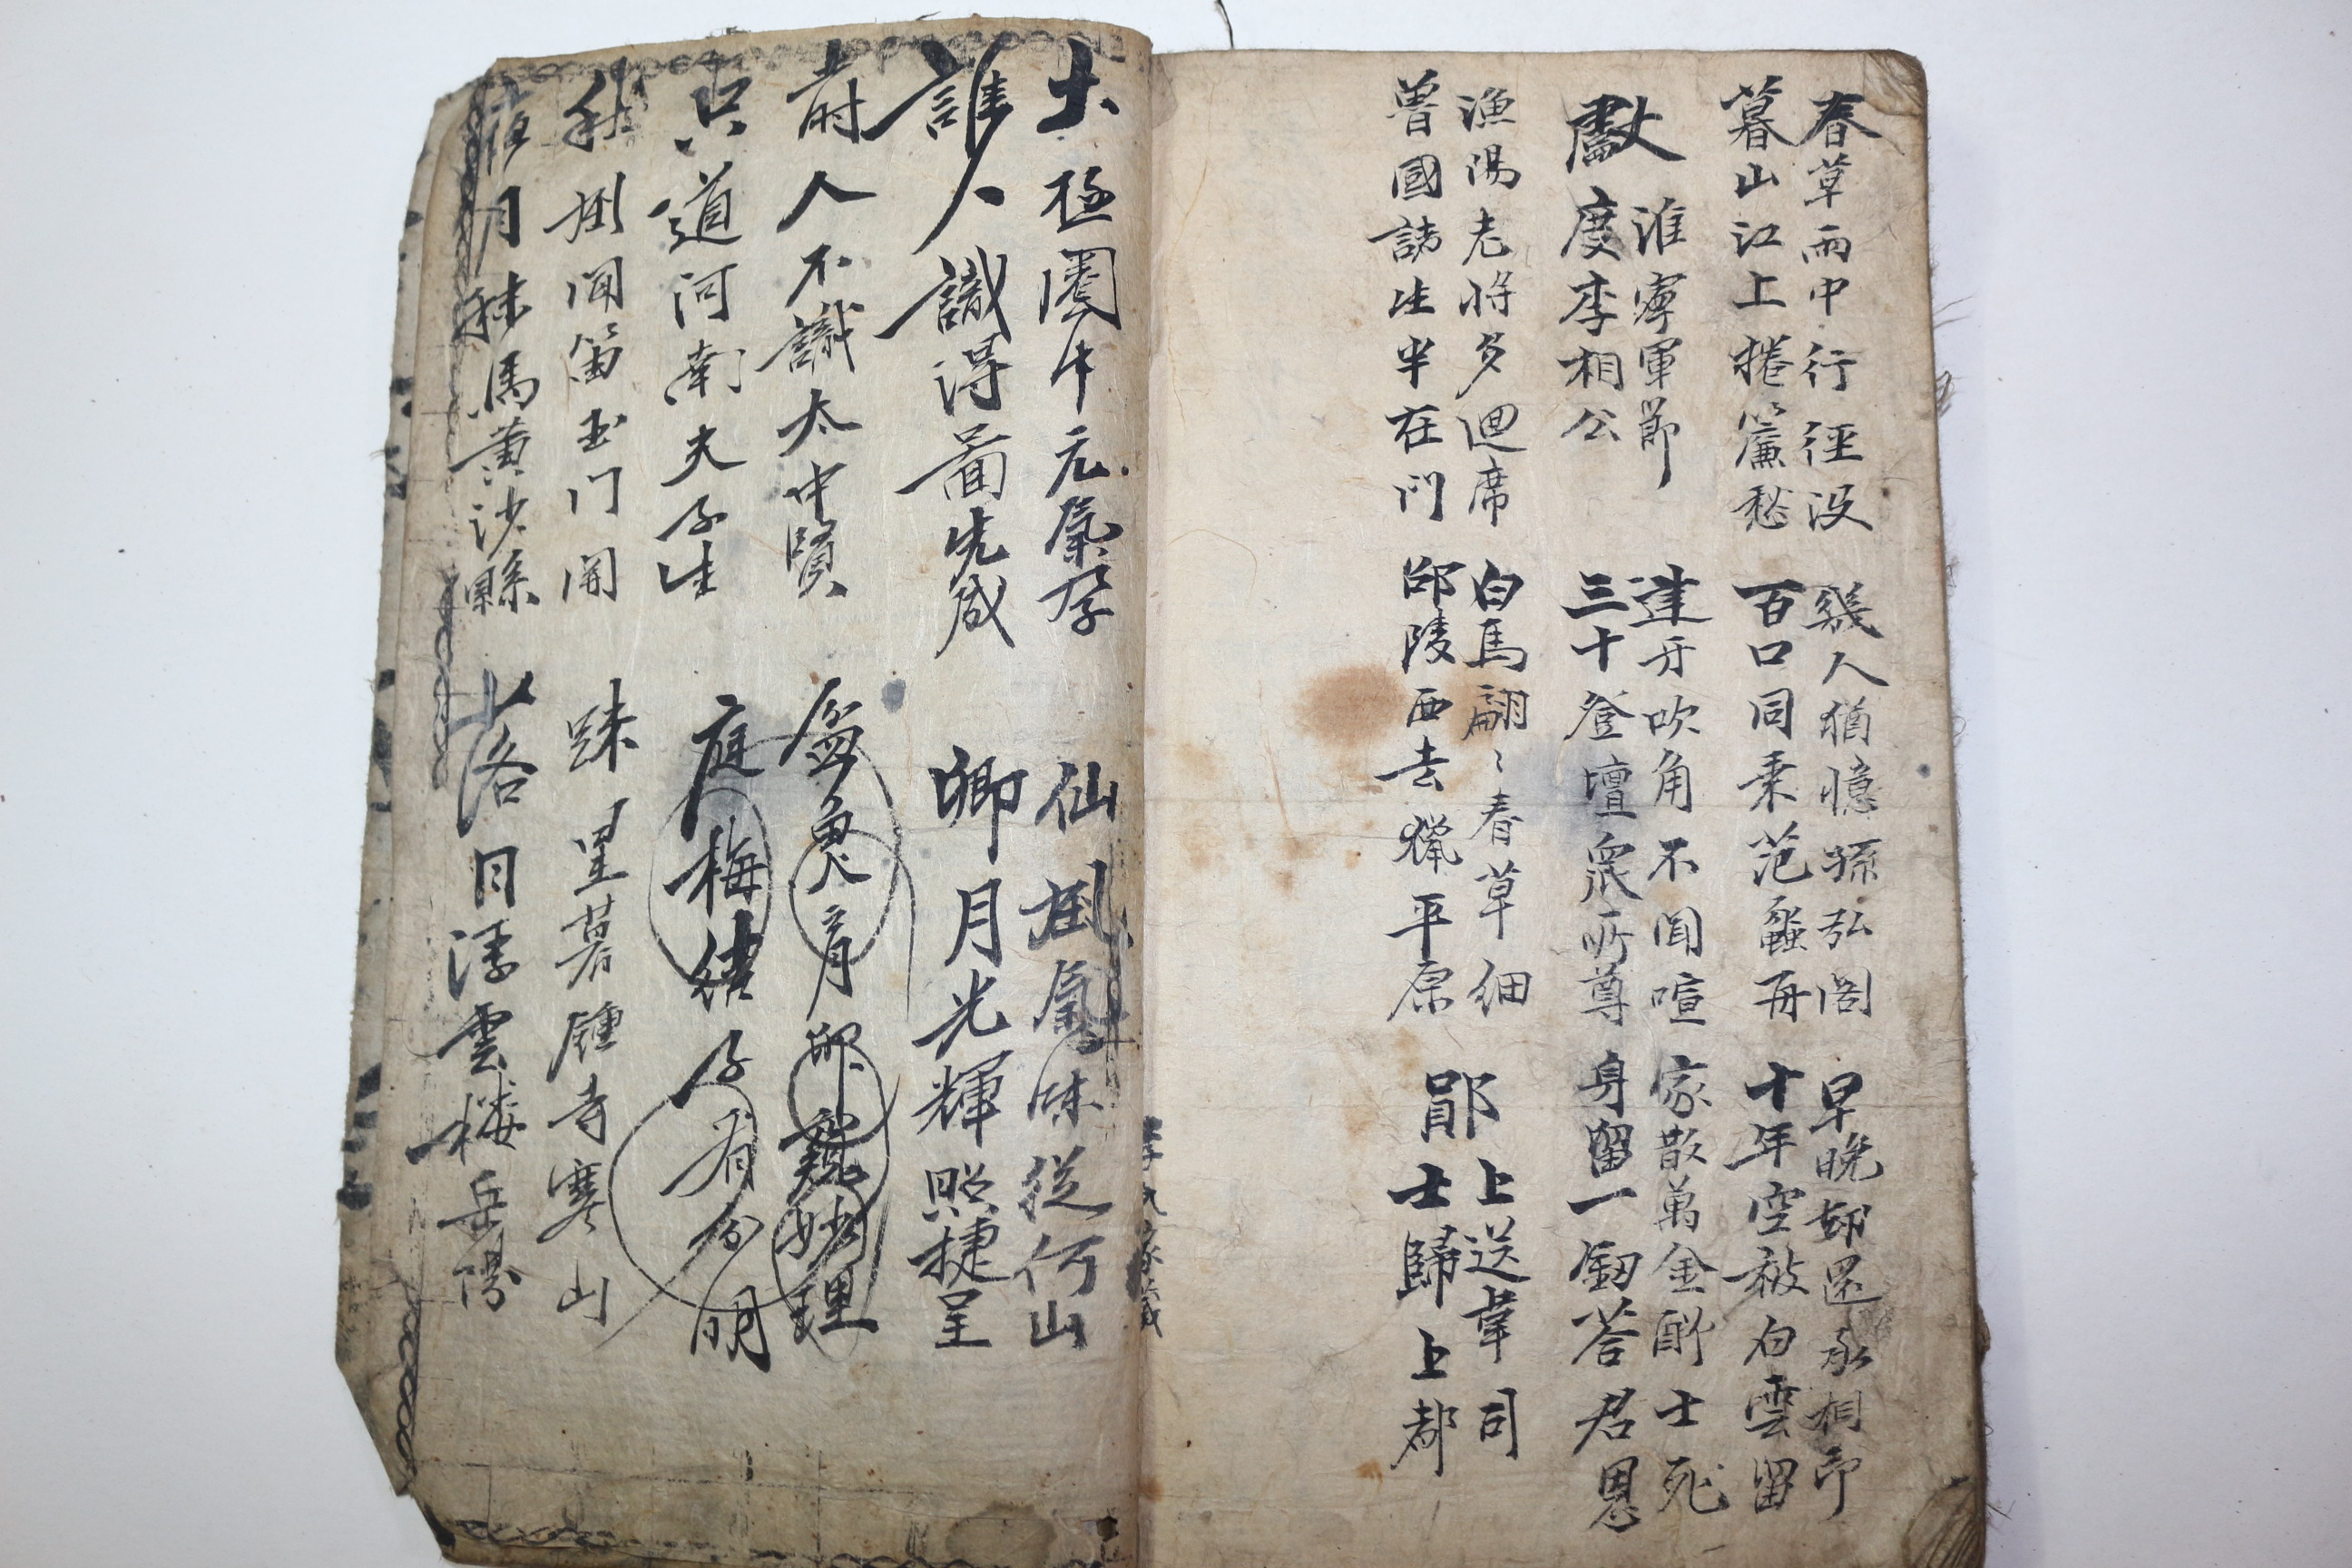 春草雨中行徑沒
暮山江上捲簾愁
幾人猶憶孫弘閣
百口同乘范蠡舟
早晚却還丞相印
十年空被白雲留
獻淮寧軍節
度李相公
建牙吹角不聞喧
三十登壇衆所尊
家散萬金酬士死
身留一劒荅君恩
漁陽老將多迴席
魯國諸生半在門
白馬翩〻春草細
邵陵西去獵平原
鄖上送韋司
士歸上都
太極圈中元氣孕
誰人識得啚先成
仙風氣味從何山
卿月光輝照捷呈
前人不識太中賢
只道河南夫子生
盆魚育 觀妙理
庭梅 子有分明
秋風聞笛玉门関
夜月秣馬黃沙縣
踈星暮鍾寺寒山
落日浮雲楼岳陽